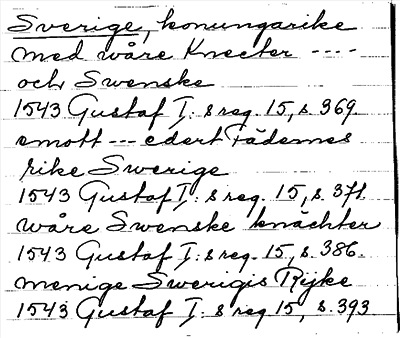 Sverige, konungarike
med wåre Knecter ----
och Swenske
1543 Gustaf I: s reg. 15, s. 369.
emott --- edert Fädernes
rike Swerige
1543 Gustaf I: s reg. 15, s. 371.
wåre Swenske knächter
1543 Gustaf I: s reg. 15, s. 386.
menige Swerigis Rijke
1543 Gustaf I: s reg. 15, s. 393.